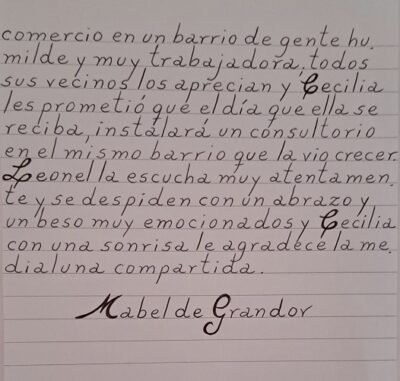 comercio en un barrio de gente hu.
milde y muy trabajadora, todos
sus vecinos los aprecian y Cecilia
les prometió que el día que ella se
reciba, instalará un consultorio
en el mismo barrio que la vio crecer.
Leonel la escucha muy atentamen.
te y se despiden con un abrazo y
un beso muy emocionados y Cecilia
con una sonrisa le agradece la me.
dialuna compartida.
Mabel de Grandor